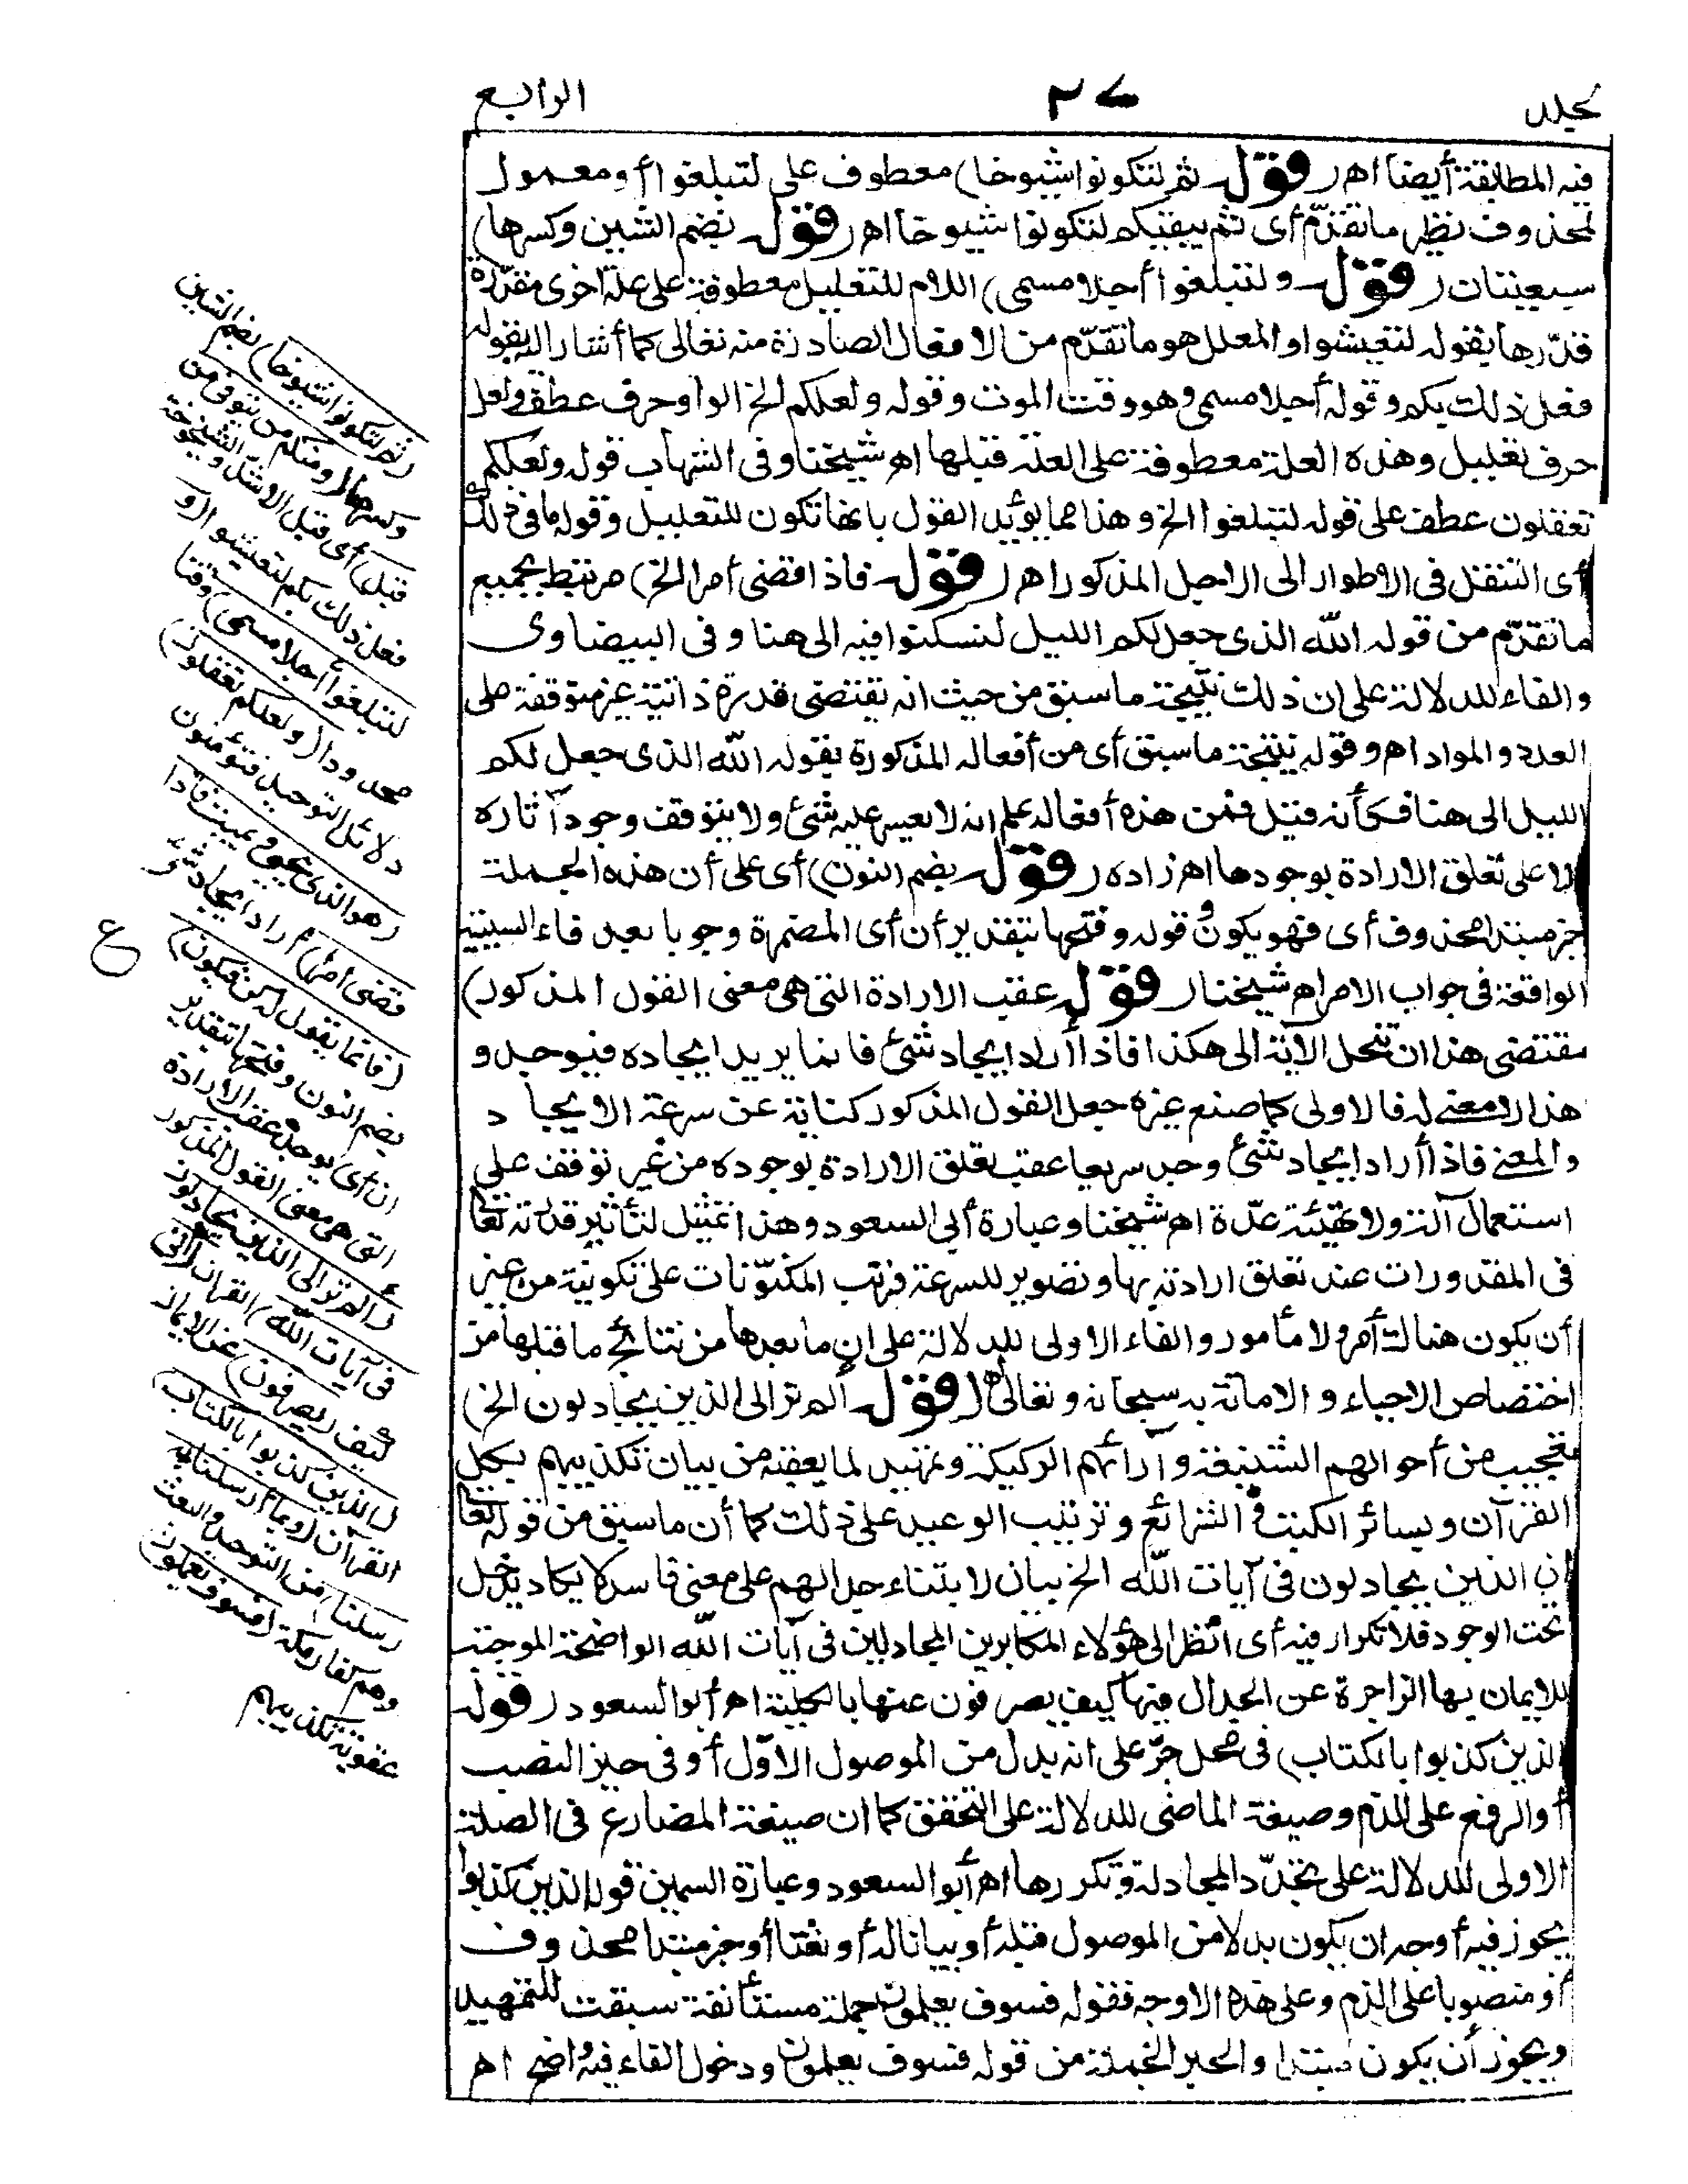 مجلد
٢٧
الرابع
فيه المطابقة أيضا اهـ (قوله ثم لتكونوا شيوخا) معطوف على لتبلغوا أو معمول
لمحذوف نظير ما تقدّم أى ثم يبقيكم لتكونوا شيوخا اهـ (قوله بضم الشين وكسرها)
سبعيتان (قوله ولتبلغوا أجلا مسمى) اللام للتعليل معطوفة على علة اخرى مقدّرة
قدّرها بقوله لتعيشوا والمعلل هو ما تقدّم من الافعال الصادرة منه تعالى كما أشار اليه بقوله
فعل ذلك بكم وقوله أجلا مسمى وهو وقت الموت وقوله ولعلكم الخ الواو حرف عطف ولعل
حرف تعليل وهذه العلة معطوفة على العلة قبلها اهـ شيخنا وفى الشهاب قوله ولعلكم
تعقلون عطف على قوله لتبلغوا الخ وهذا مما يؤيد القول بانها تكون للتعليل وقوله ما فى ذلك
أى التنقل فى الاطوار الى الاجل المذكور اهـ (قوله فاذا قضى أمرا الخ) مرتبط بجميع
ما تقدّم من قوله الله الذى جعل لكم الليل لتسكنوا فيه الى هنا وفى البيضاوى
والفاء للدلالة على ان ذلك نتيجة ما سبق من حيث انه يقتضى قدرة ذاتية غير متوقفة على
العدد والمواد اهـ وقوله نتيجة ما سبق أى من أفعاله المذكورة بقوله الله الذى جعل لكم
الليل الى هنا فكأنه قيل فمن هذه أفعاله علم انه لا يعسر عليه شئ ولا يتوقف وجود آثاره
الا على تعلق الارادة بوجودها اهـ زاده (قوله بضم النون) أى على أن هذه الجملة
خبر مبتدا محذوف أى فهو يكون وقوله وفتحها بتقدير أن أى المضمرة وجوبا بعد فاء السببية
الواقعة فى جواب الامر اهـ شيخنا (قوله عقب الارادة التى هى معنى القول المذكور)
مقتضى هذا ان تنحل الآية الى هكذا فاذا أراد ايجاد شئ فانما يريد ايجاده فيوجد و
هذا لا معنى له فالاولى كما صنع غيره جعل القول المذكور كناية عن سرعة الايجاد
والمعنى فاذا أراد ايجاد شئ وجد سريعا عقب تعلق الارادة بوجوده من غير توقف على
استعمال آلة ولا تهيئة عدّة اهـ شيخنا وعبارة أبى السعود وهذا تمثيل لتأثير قدرته تعالى
فى المقدورات عند تعلق ارادته بها وتصوير للسرعة ترتب المكوّنات على تكوينه من غير
أن يكون هنالك أمر ولا مأمور والفاء الاولى للدلالة على ان ما بعدها من نتائج ما قبلها من
اختصاص الاحياء والاماتة به سبحانه وتعالى اهـ (قوله ألم تر الى الذين يجادلون الخ)
تعجيب من أحوالهم الشنيعة وآرائهم الركيكة وتمهيد لما يعقبه من بيان تكذيبهم بكل
القرآن وبسائر الكتب والشرائع وترتيب الوعيد على ذلك كما أن ما سبق من قوله تعالى
ان الذين يجادلون فى آيات الله الخ بيان لابتناء جدالهم على معنى فاسد لا يكاد يدخل
تحت الوجود فلا تكرار فيه أى انظر الى هؤلاء المكابرين المجادلين فى آيات الله الواضحة الموجبة
للايمان بها الزاجرة عن الجدال فيها كيف يصرفون عنها بالكلية اهـ أبو السعود (قوله
الذين كذبوا بالكتاب) فى محل جرّ على انه بدل من الموصول الاوّل أو فى حيز النصب
أو الرفع على الذم وصيغة الماضى للدلالة على التحقق كما ان صيغة المضارع فى الصلة
الاولى للدلالة على تجدّد المجادلة وتكررها اهـ أبو السعود وعبارة السمين قوله الذين كذبوا
يجوز فيه أوجه ان يكون بدلا من الموصول قبله أو بيانا له أو نعتا أو خبر مبتدا محذوف
أو منصوبا على الذم وعلى هذه الاوجه فقوله فسوف يعلمون جملة مستأنفة سيقت للتهديد
ويجوز أن يكون مبتدا والخبر الجملة من قوله فسوف يعلمون ودخول الفاء فيه واضح اهـ
(ثم لتكونوا شيوخا) بضم الشين
وكسرها (ومنكم من يتوفى من
قبل) أى قبل الاشد والشيخوخة
فعل ذلك بكم لتعيشوا (و
لتبلغوا أجلا مسمى) وقتا
محدودا (ولعلكم تعقلون)
دلائل التوحيد فتؤمنون
(هو الذى يحيى ويميت فاذا
قضى امرا) أراد ايجاد شئ
(فانما يقول له كن فيكون)
بضم النون وفتحها بتقدير
ان أى يوجد عقب الارادة
التى هى معنى القول المذكور
(ألم تر الى الذين يجادلون
فى آيات الله) القرآن (أنى)
كيف (يصرفون) عن الايمان
(الذين كذبوا بالكتاب)
القرآن (وبما أرسلنا به
رسلنا) من التوحيد والبعث
وهم كفار مكة (فسوف يعلمون)
عقوبة تكذيبهم
ع